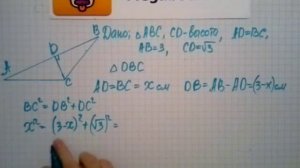 B
Дано: △ABC, CD-высота, AD=BC,
AB=3, CD=√3
D
△DBC
A
C
AD=BC=x см DB=AB-AD=(3-x)см
BC²=DB²+DC²
x²=(3-x)²+(√3)²=